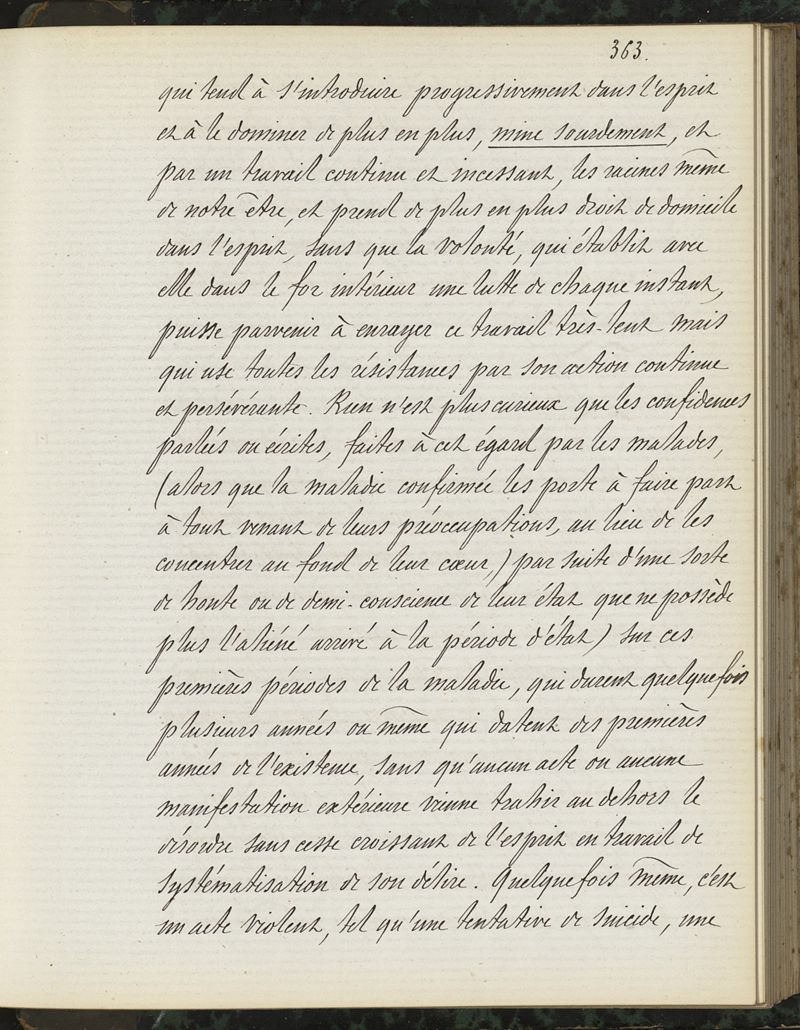 363.
qui tend à s'introduire progressivement dans l'esprit
et à le dominer de plus en plus, mine sourdement, et
par un travail continu et incessant, les racines même
de notre être, et prend de plus en plus droit de domicile
dans l'esprit, sans que la volonté, qui établit avec
elle dans le for intérieur une lutte de chaque instant,
puisse parvenir à enrayer ce travail très-lent mais
qui use toutes les résistances par son action continue
et persévérante. Rien n'est plus curieux que les confidences
parlées ou écrites, faites à cet égard par les malades,
(alors que la maladie confirmée les porte à faire part
à tout venant de leurs préoccupations, au lieu de les
concentrer au fond de leur cœur,) par suite d'une sorte
de honte ou de demi-conscience de leur état que ne possède
plus l'aliéné arrivé à la période d'état) sur ces
premières périodes de la maladie, qui durent quelquefois
plusieurs années ou même qui datent des premières
années de l'existence, sans qu'aucun acte ou aucune
manifestation extérieure vienne trahir au dehors le
désordre sans cesse croissant de l'esprit en travail de
systématisation de son délire. Quelquefois même, c'est
un acte violent, tel qu'une tentative de suicide, une